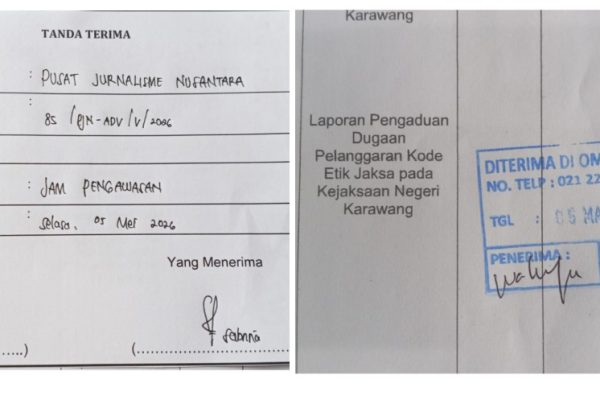 TANDA TERIMA
: PUSAT JURNALISME NUSANTARA
: 85 /PJN-ADV/V/2026
: JAM PENGAWASAN
: Selasa, 05 Mei 2026
Yang Menerima
Sabrina
.....) (..................
Karawang
Laporan Pengaduan
Dugaan
Pelanggaran Kode
Etik Jaksa pada
Kejaksaan Negeri
Karawang
DITERIMA DI OM
NO. TELP : 021 22
TGL : 05 MA
PENERIMA :